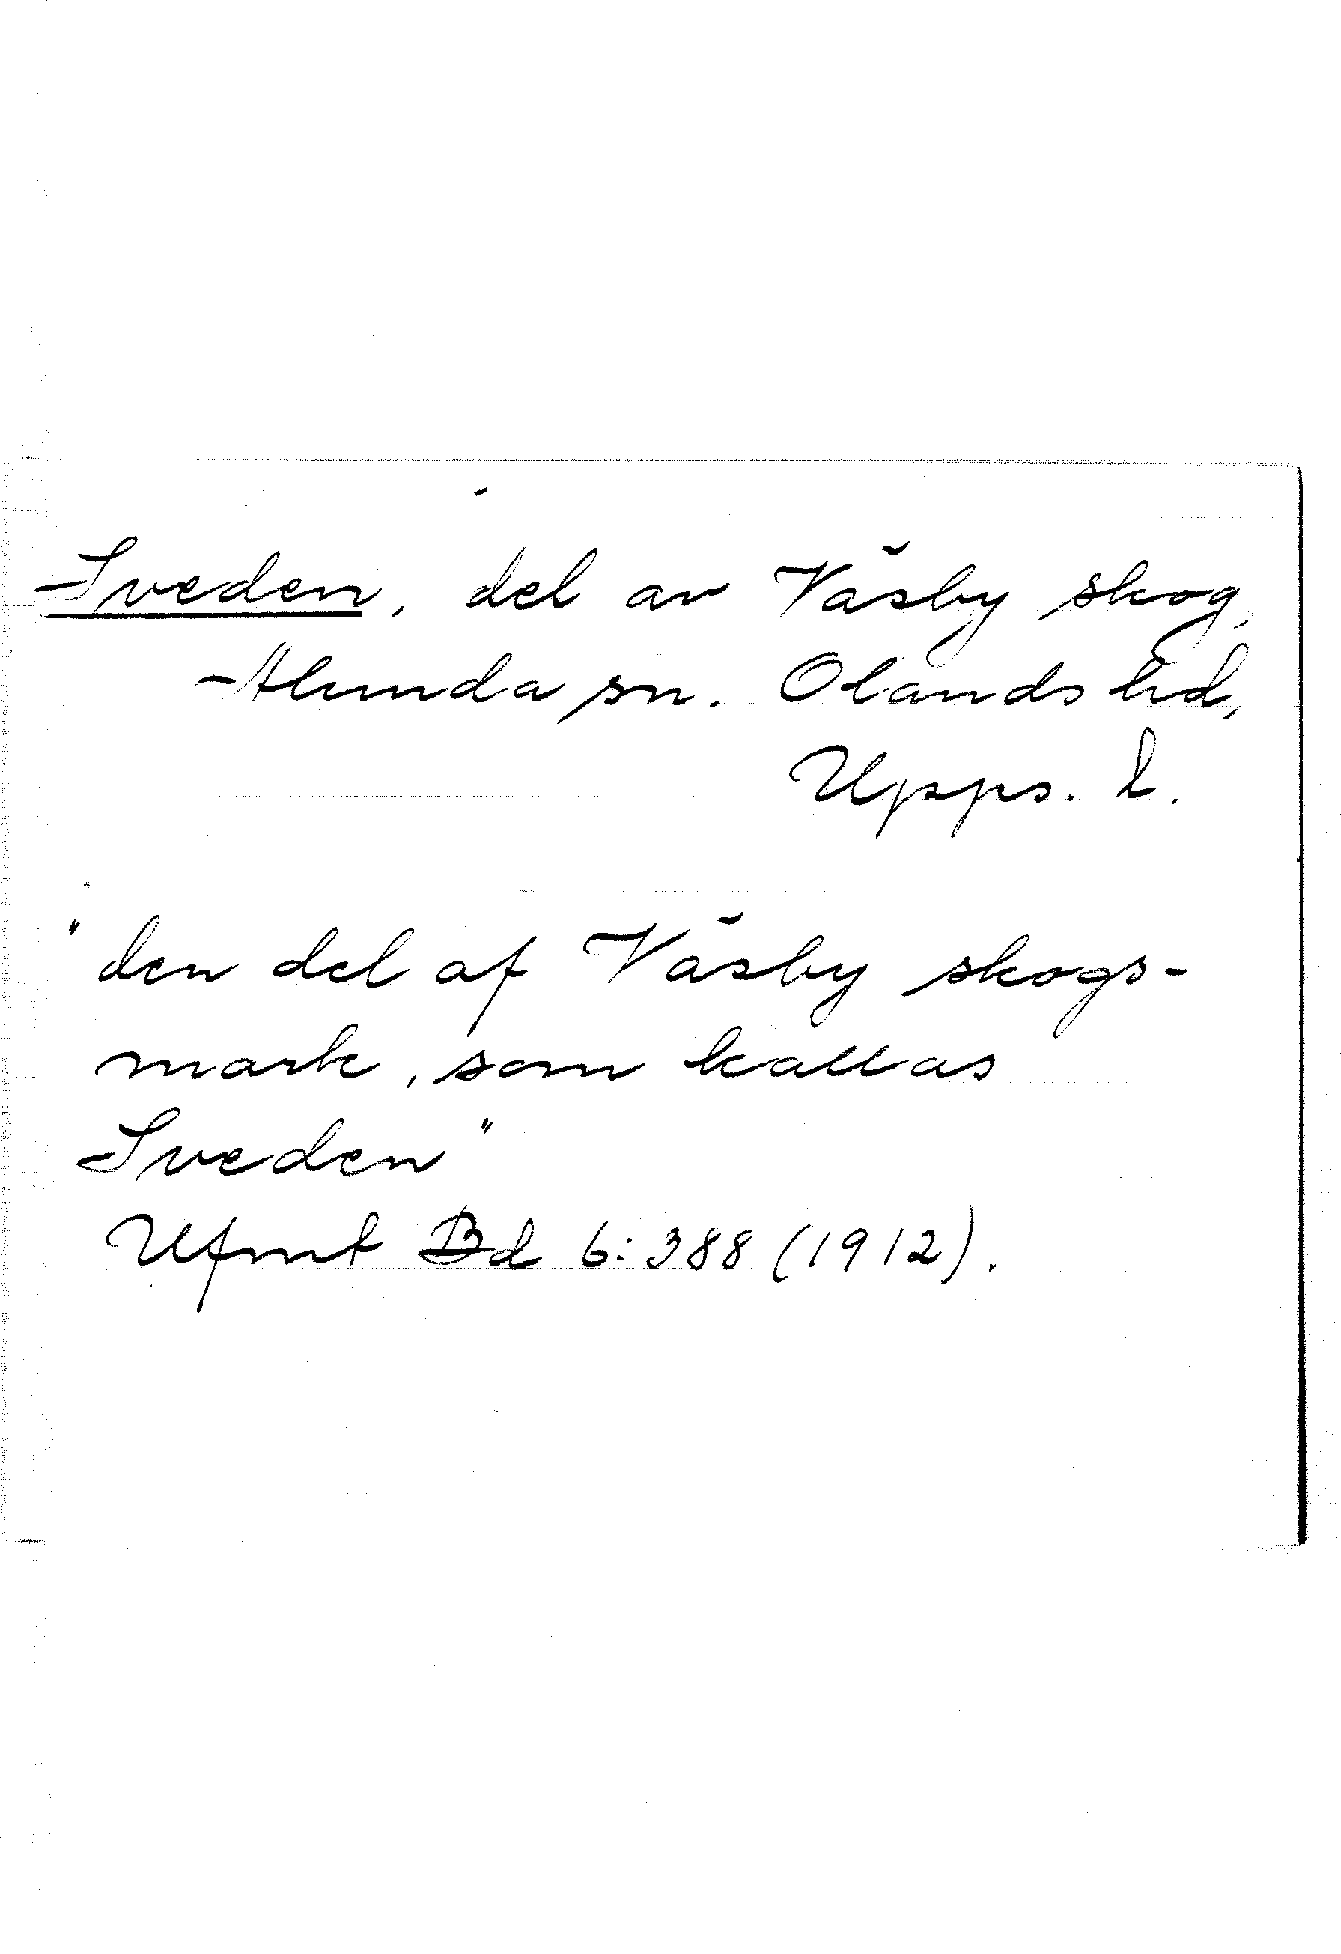 Sveden, del av Väsby skog,
Alunda sn. Olands hd,
Upps. l.
"den del af Väsby skogs-
mark, som kallas
Sveden"
Ufmt Bd 6:388 (1912).